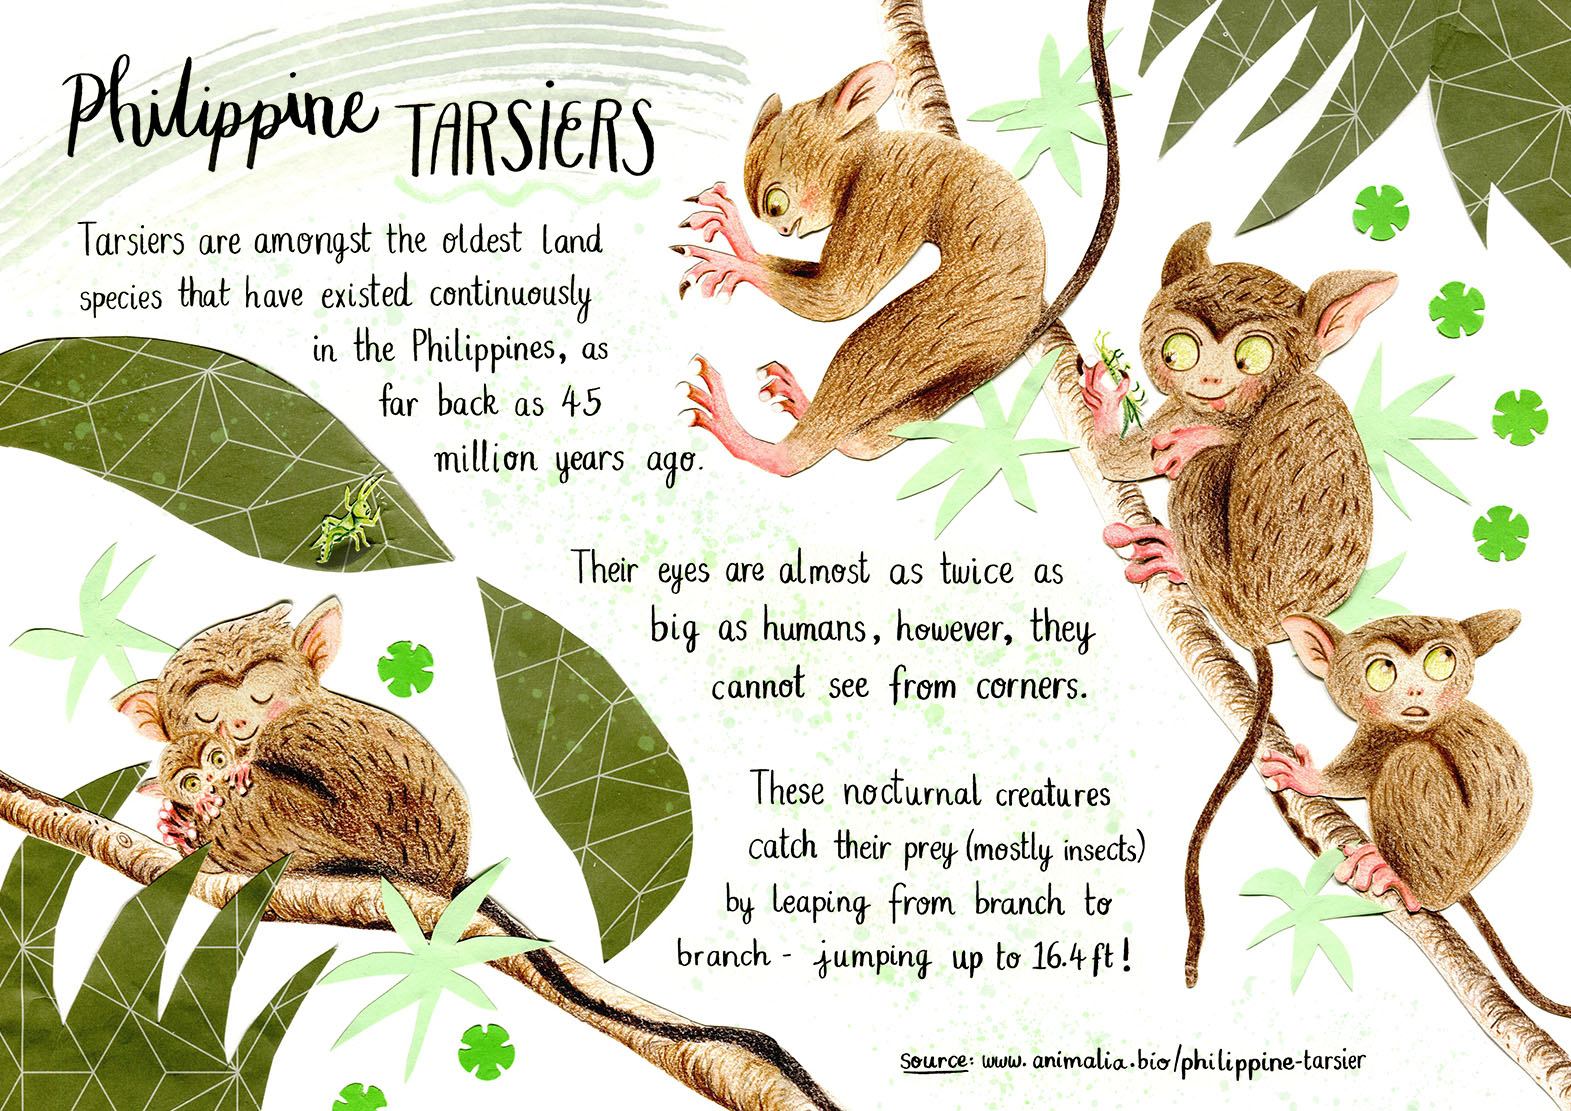 Philippine TARSIERS
Tarsiers are amongst the oldest land
species that have existed continuously
in the Philippines, as
far back as 45
million years ago.
Their eyes are almost as twice as
big as humans, however, they
cannot see from corners.
These nocturnal creatures
catch their prey (mostly insects)
by leaping from branch to
branch - jumping up to 16.4 ft!
source: www.animalia.bio/philippine-tarsier